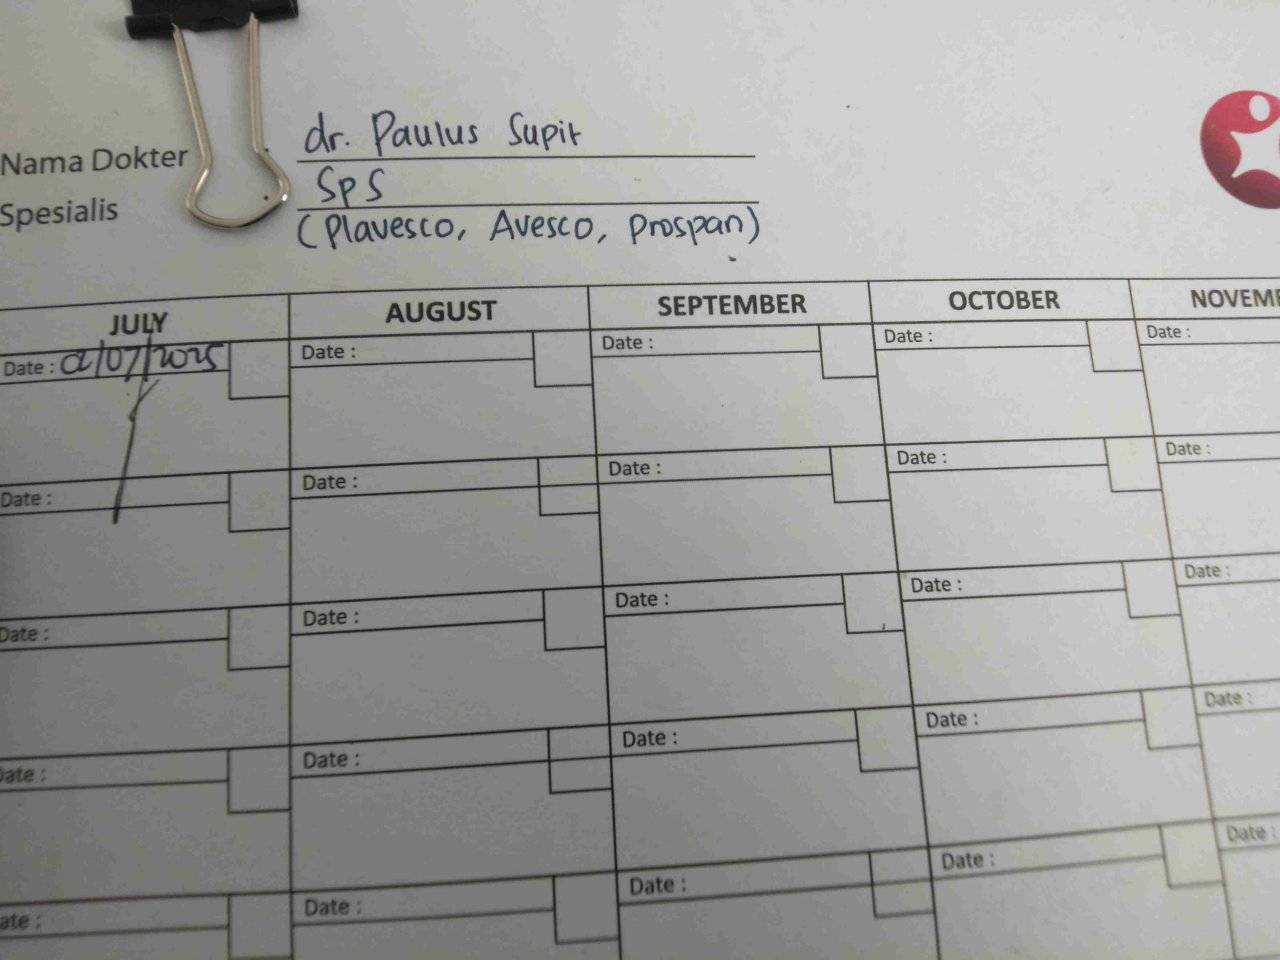 Nama Dokter dr. Paulus Supit
Spesialis SpS
(Plavesco, Avesco, Prospan)
JULY AUGUST SEPTEMBER OCTOBER NOVEM
Date : 02/07/2025 Date : Date : Date : Date :
Date : Date : Date : Date : Date :
Date : Date : Date : Date : Date :
Date : Date : Date : Date : Date :
ate : Date : Date : Date : Date :